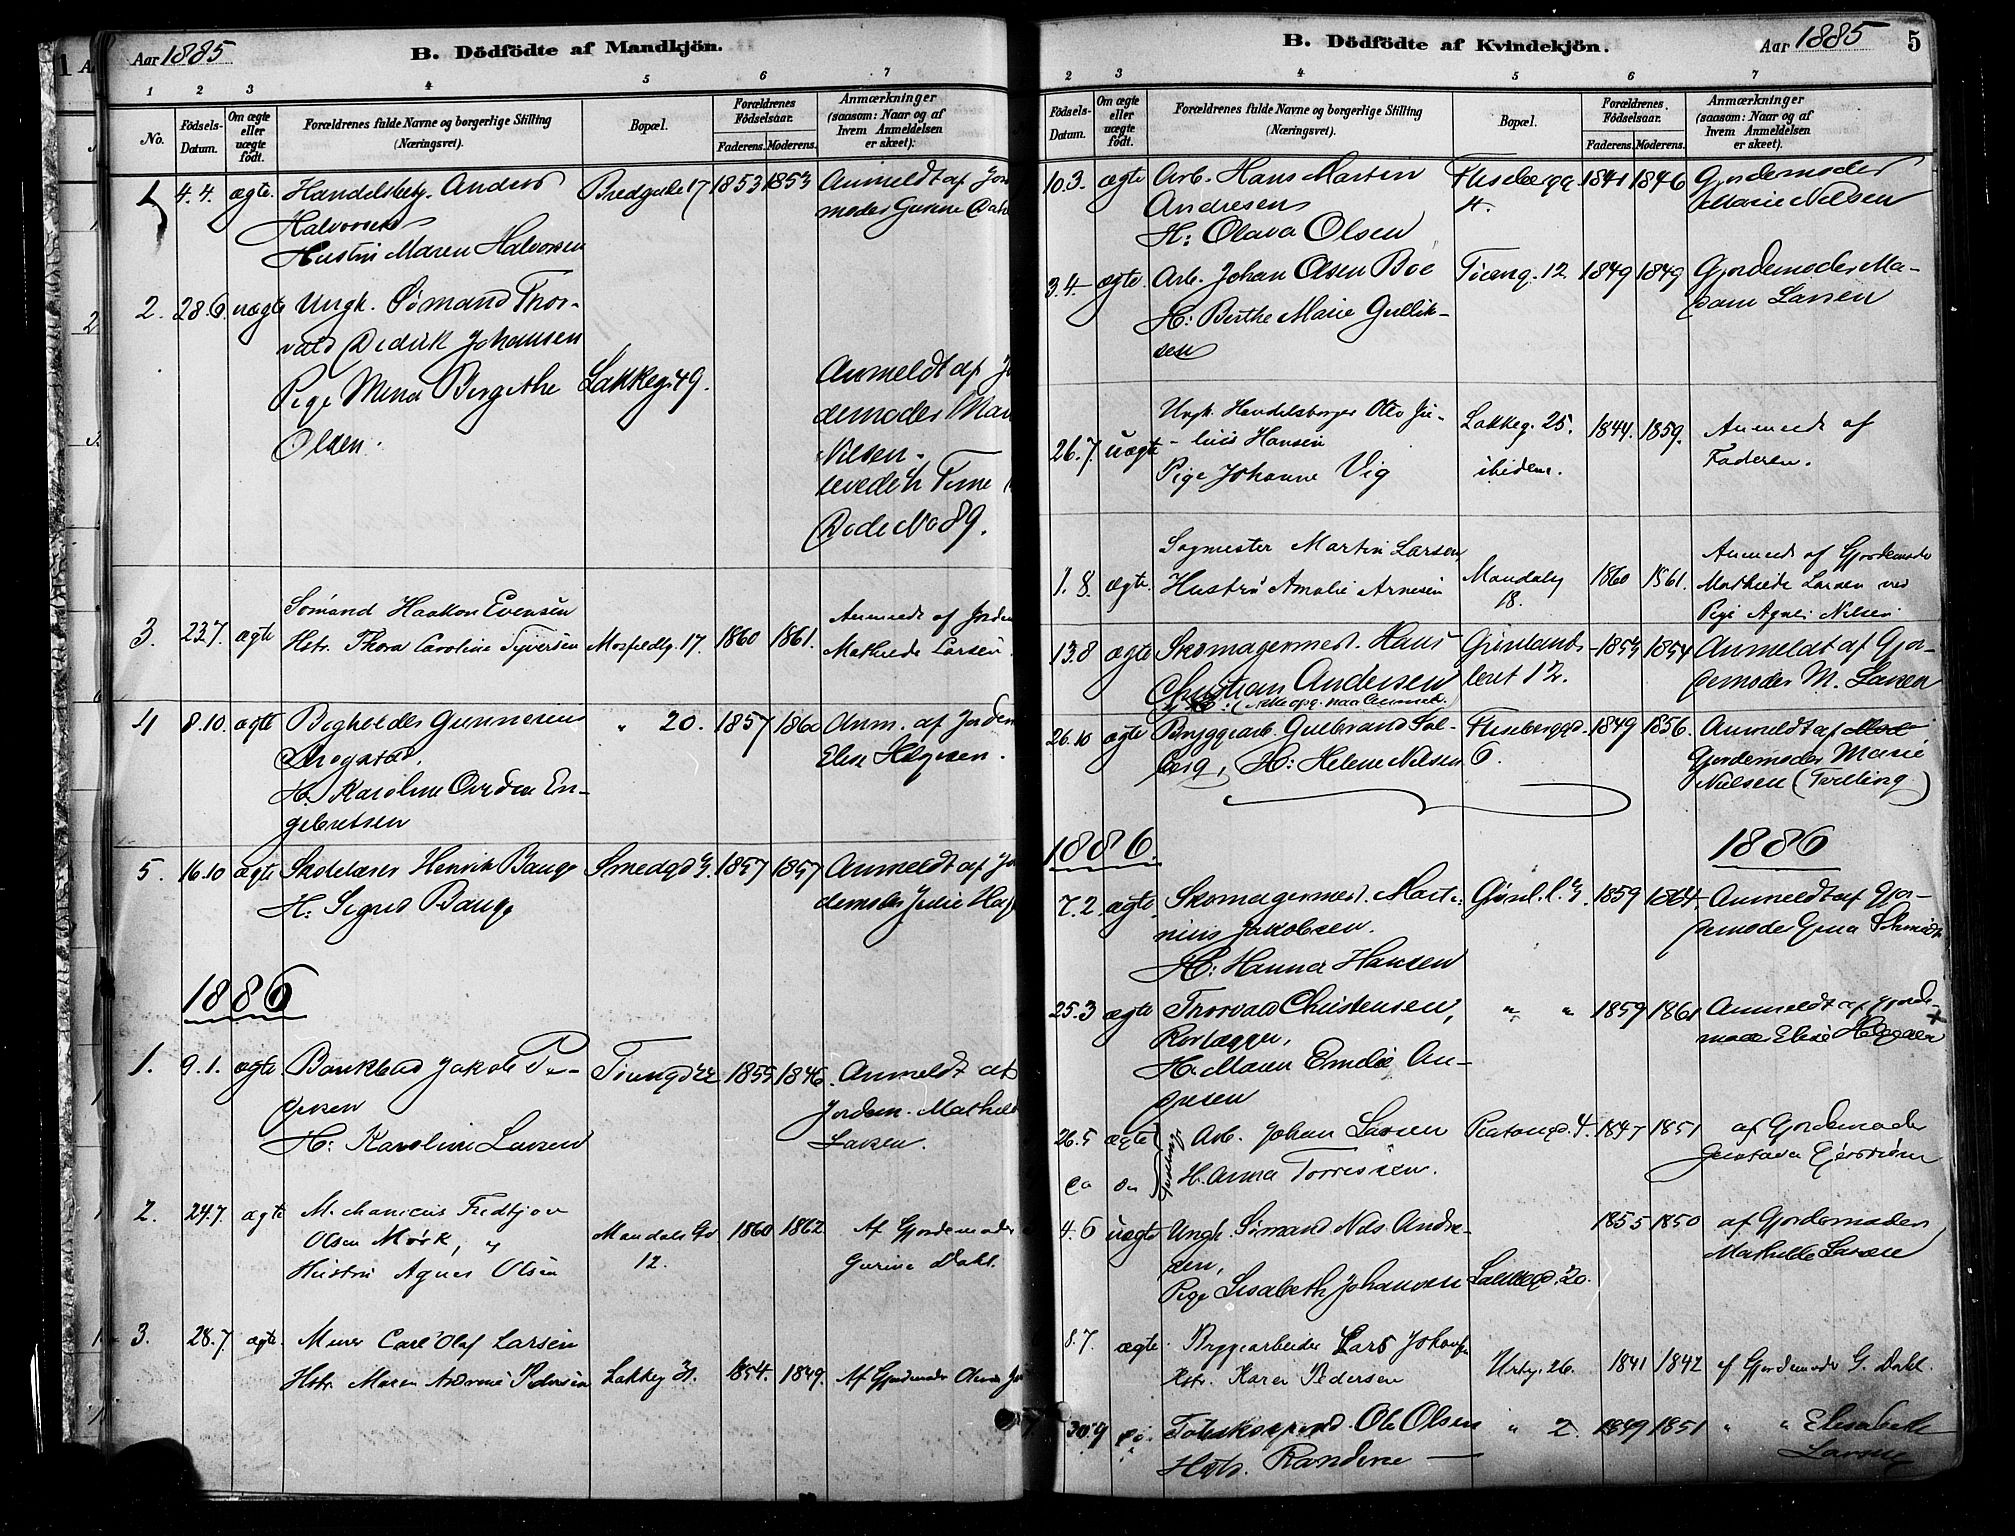 Aar 1885
B. Dödfödte af Mandkjön.
1 2 3 4 5 6 7
No.
Födsels-Datum.
Om ægte eller uægte födt.
Forældrenes fulde Navne og borgerlige Stilling
(Næringsvei).
Bopæl.
Forældrenes Födselsaar.
Faderens. Moderens.
Anmærkninger
(saasom: Naar og af
hvem Anmeldelsen
er skeet).
1 4.4. ægte. Handelsbetj. Anders Bredgade 17 1853 1853 Anmeldt af Jor
Halvorsen moder Gurine Dahl
Hustru Maren Halvorsen
2. 28.6. uægte Ungk. Sømand Thor-
vald Didrik Johansen
Pige Mina Birgithe Lakkeg. 49. Anmeldt af J
Olsen. demoder Mar
Nilsen.
levede ½ Time
Døde No 89.
3. 23.7. ægte Sømand Haakon Evensen 1860 1861. Anmeldt af Jordem
Hstr. Thora Caroline Syversen Mosfeldtg. 17. Mathilde Larsen.
4 8.10. ægte Bogholder Gunnerius " 20. 1857 1860 Anm. af Jordem
Drogstad, Elise Helgesen.
H. Karoline En-
gebretsen
5. 16.10 ægte Skolelærer Henrik Bauge Smedgd 1857 1857 Anmeldt af Jor
H: Sigrid Bauge demoder Julie
1886
1. 9.1. ægte Bankbud Jakob Pe- Tøiengd 22 1855 1846. Anmeldt af
dersen Jordem. Mathilde
H: Karoline Larsen Larsen.
2. 24.7. ægte Mechanicus Fridtjov
Olsen Mørk, Mandals Gd 1860 1862. Af Gjordemoder
Hustru Agnes Olsen 12. Gurine Dahl.
3. 28.7. ægte. Murer Carl Olaf Larsen
Hstr. Maren Andrine Pedersen Lakkeg 1854. 1849. Af Gjordemoder
B. Dödfödte af Kvindekjön.
Aar 1885 5
2 3 4 5 6 7
Födsels-Datum.
Om ægte eller uægte födt.
Forældrenes fulde Navne og borgerlige Stilling
(Næringsvei).
Bopæl.
Forældrenes. Födselsaar.
Faderens. Moderens.
Anmærkninger
(saasom: Naar og af
hvem Anmeldelsen
er skeet).
10.3. ægte Arb. Hans Martin Fliseberggd 1841 1846 Gjordemoder
Andresen 4. Marie Nilsen
H: Olava Olsen
3.4. ægte. Arb. Johan Olsen Boe Tøieng. 12 1849 1849 Gjordemoder Ma-
H: Berthe Marie Gullik- dam Larsen
sen
26.7. uægte Ungk. Handelsborger Otto Ju- Lakkeg. 25. 1844. 1859. Anmeldt af
lius Hansen Faderen.
Pige Johanne Vig ibidem.
1.8. ægte. Sagmester Martin Larsen, Mandalsg 1860 1861. Anmeldt af Gjordemoder
Hustru Amalie Arnesen 18. Mathilde Larsen ved
Pige Agnes Nilsen.
13.8 ægte Skomagermest. Hans Grønlands- 1853 1854 Anmeldt af Gjor-
Christian Andersen leret 12. demoder M. Larsen
(ikke opg. naar Anmeldt.)
26.10 ægte Bryggearb. Gulbrand Sol- Fliseberggd. 1849 1856. Anmeldt af
berg, H: Helene Nilsen 6. Gjordemoder Marie
Nilsen (Tvilling)
1886. 1886
7.2. ægte. Skomagermest. Marti- Grønl. l. 1859 1864. Anmeldt af Gjor-
nius Jakobsen. demoder Gina Schmidt
H: Hanna Hansen
25.3 ægte Thorvald Christensen, " " 1859 1861 Anmeldt af Gjorde-
Rørlægger, moder Elise Helgesen
H. Maren Emilie An-
dresen
26.5 ægte Arb. Johan Larsen Platougd. 4. 1847 1851 af Gjordemoder
H. Anna Torresen. Gustava
4.6 uægte Ungk. Sømand Nils Andre- 1855 1850 af Gjordemoder
sen, Mathilde Larsen
Pige Lisabeth Johansen Lakkegd. 20.
8.7 ægte. Bryggearbeider Lars Johansen
Hstr. Karen Pedersen Urteg. 26. 1841 1842 af Gjordemoder G. Dahl
30.9 Ole Olsen " 2. 1849 1851 " " Elisabeth
Hstr. Randine Larsen